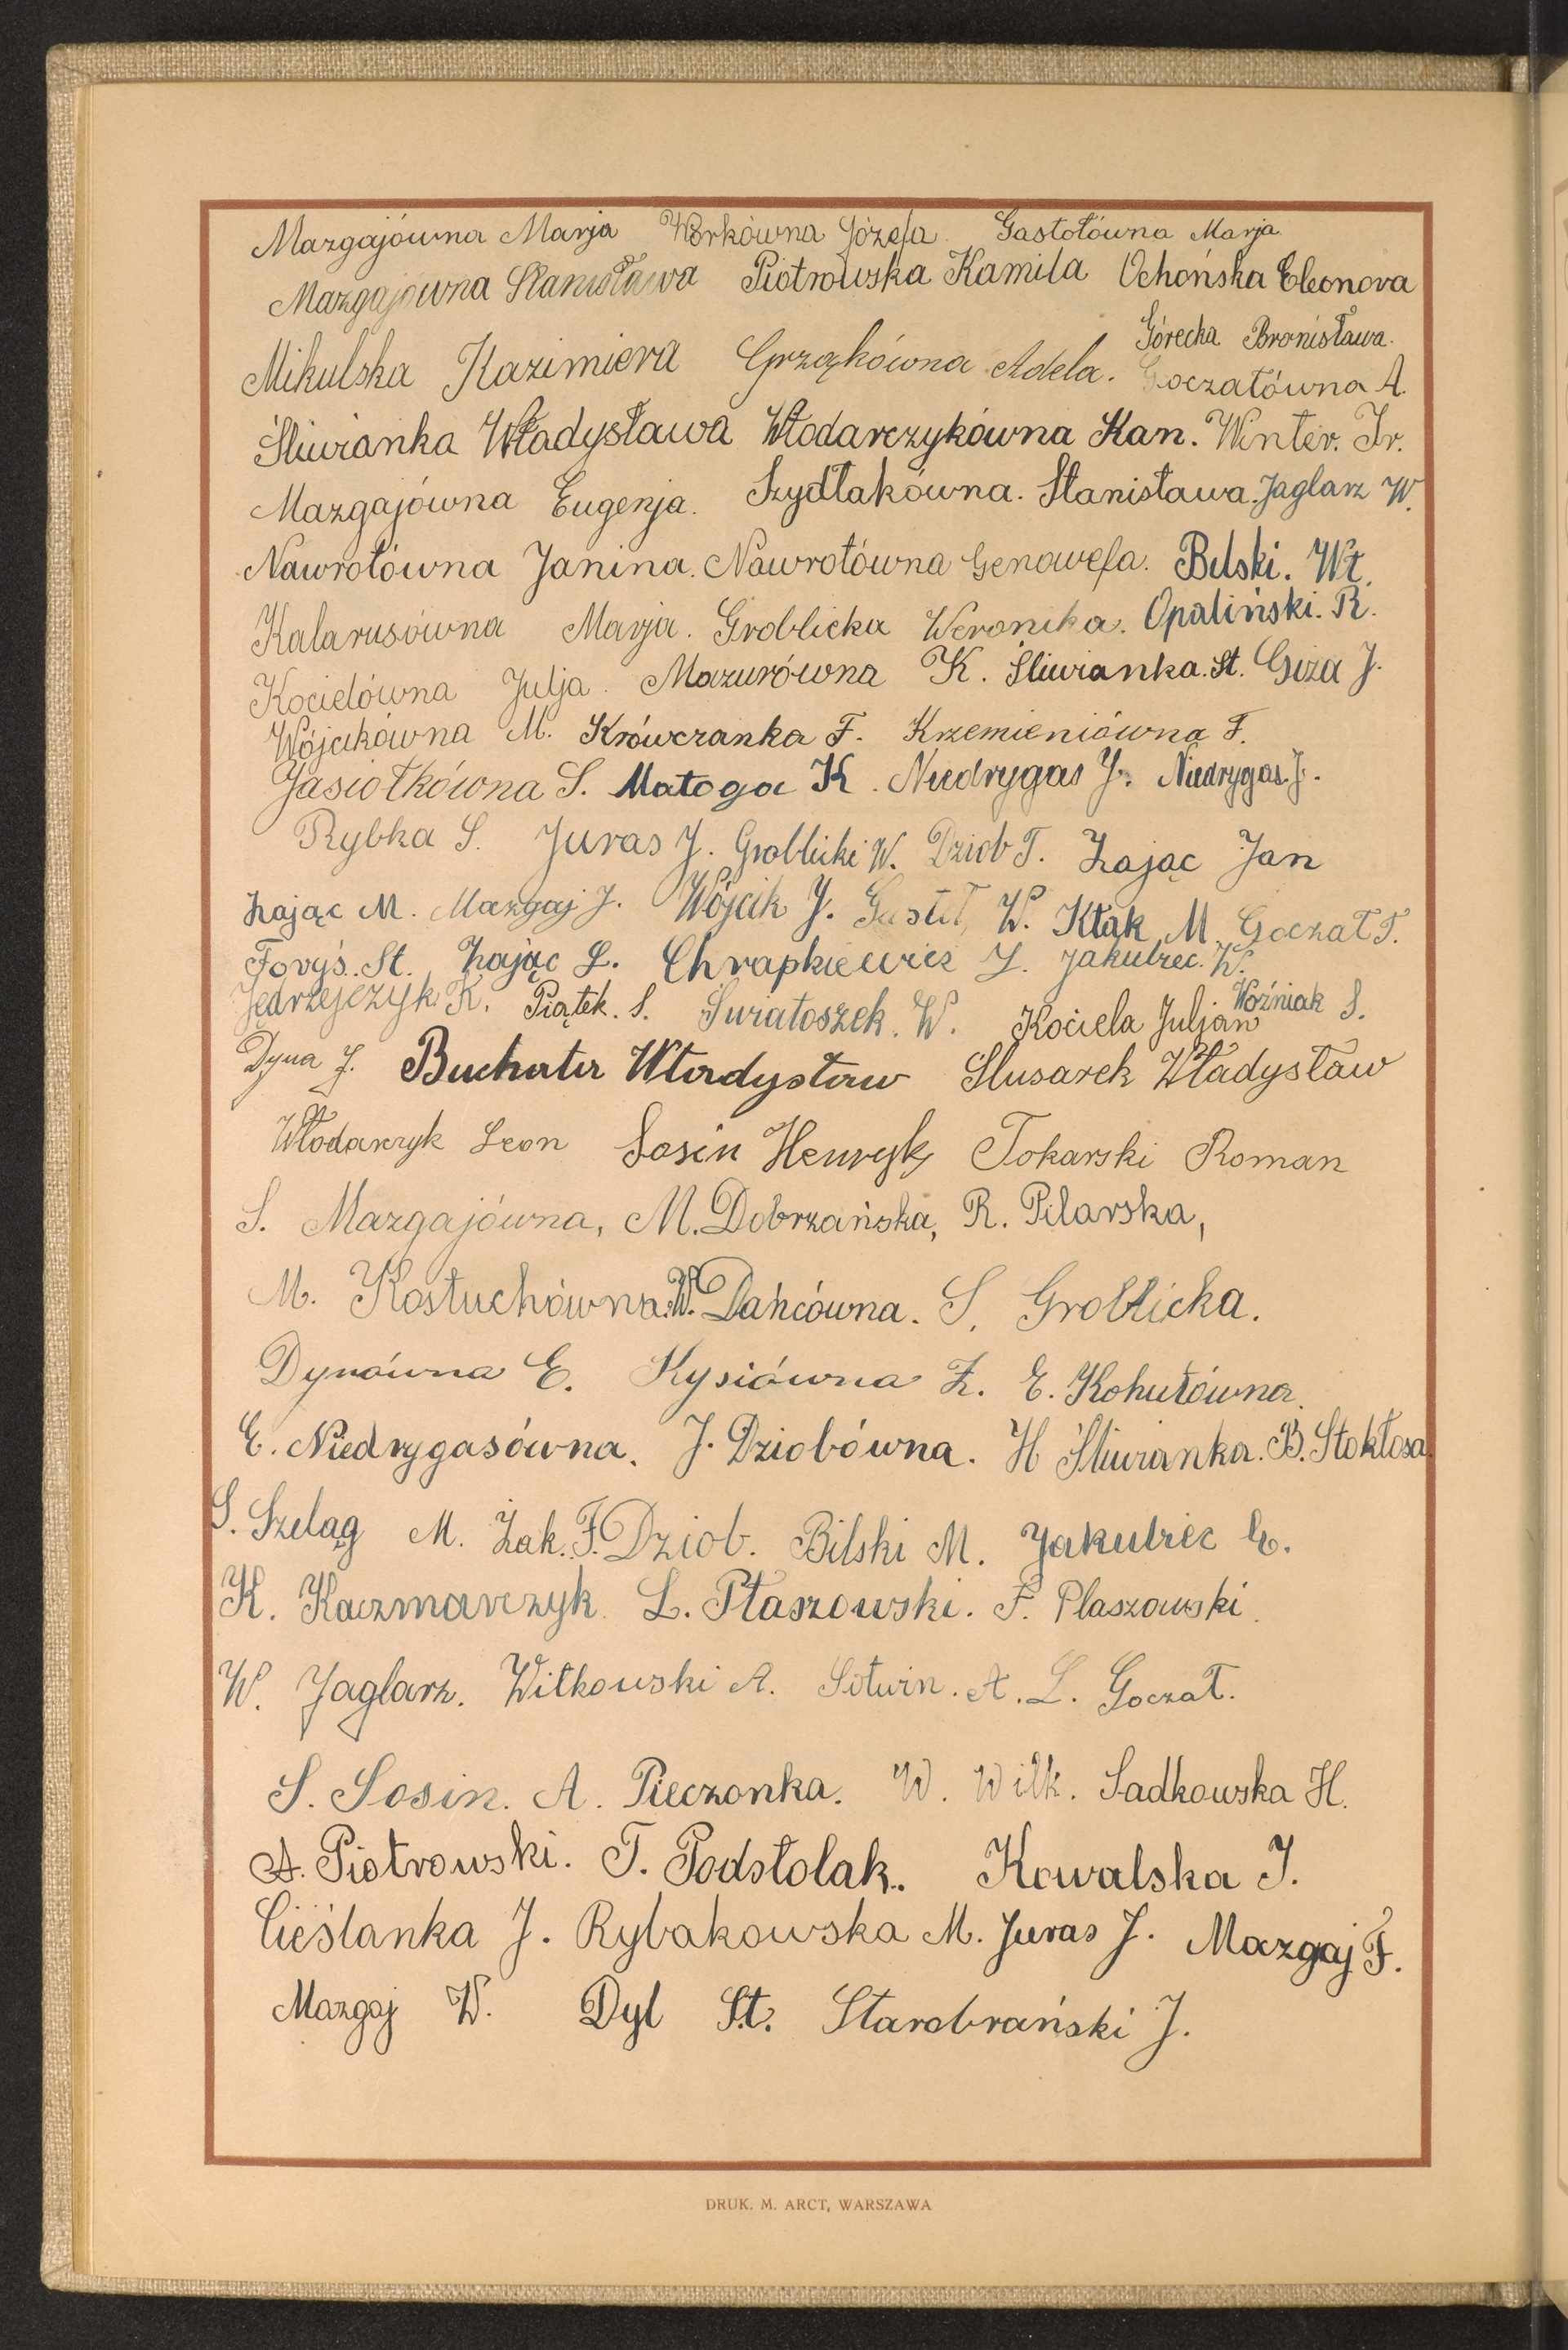 Mazgajówna Marja Workówna Józefa Gastołówna Marja
Mazgajówna Stanisława Piotrowska Kamila Ochońska Eleonora
Górecka Bronisława.
Mikulska Kazimiera Grząkówna Adela. Goczałówna A.
Śliwianka Władysława Włodarczykówna Kan. Winter. Ir.
Mazgajówna Eugenja. Szydłakówna. Stanisława. Jaglarz W.
Nawrotówna Janina. Nawrotówna Genowefa. Bilski. Wł.
Kalarusówna Marja. Groblicka Weronika. Opaliński. R.
Kocielówna Julja. Mazurówna K. Śliwianka. St. Giza J.
Wójcikówna M. Krówczanka F. Krzemieniówna F.
Jasiołkówna S. Matoga K. Niedrygas J. Niedrygas J.
Rybka S. Juras J. Groblicki W. Dziob T. Zając Jan
Zając M. Mazgaj J. Wójcik J. W. Kłak M. Goczał T.
Foryś. St. Zając L. Chrapkiewicz Z. Jakubiec. W.
Jędrzejczyk K. Piątek. S. Światoszek. W. Kociela Juljan Woźniak S.
Dyna J. Buchater Władysław Ślusarek Władysław
Włodarczyk Leon Sosin Henryk Tokarski Roman
S. Mazgajówna, M. Dobrzańska, R. Pilarska,
M. Kostuchówna. W. Dańcówna. S. Groblicka.
Dynówna E. Kysiówna Z. E. Kohutówna.
E. Niedrygasówna. J. Dziobówna. H Śliwianka. B. Stokłosa.
S. Szeląg M. Żak. F. Dziob. Bilski M. Jakubiec E.
K. Kaczmarczyk. L. Płaszowski. F. Płaszowski.
W. Jaglarz. Witkowski A. Sitwin. A. L. Goczał.
S. Sosin. A. Pieczonka. W. Wilk. Sadkowska H.
A. Piotrowski. T. Podstolak. Kowalska J.
Cieślanka J. Rybakowska M. Juras J. Mazgaj F.
Mazgaj W. Dyl St. Starobrański J.
DRUK. M. ARCT, WARSZAWA